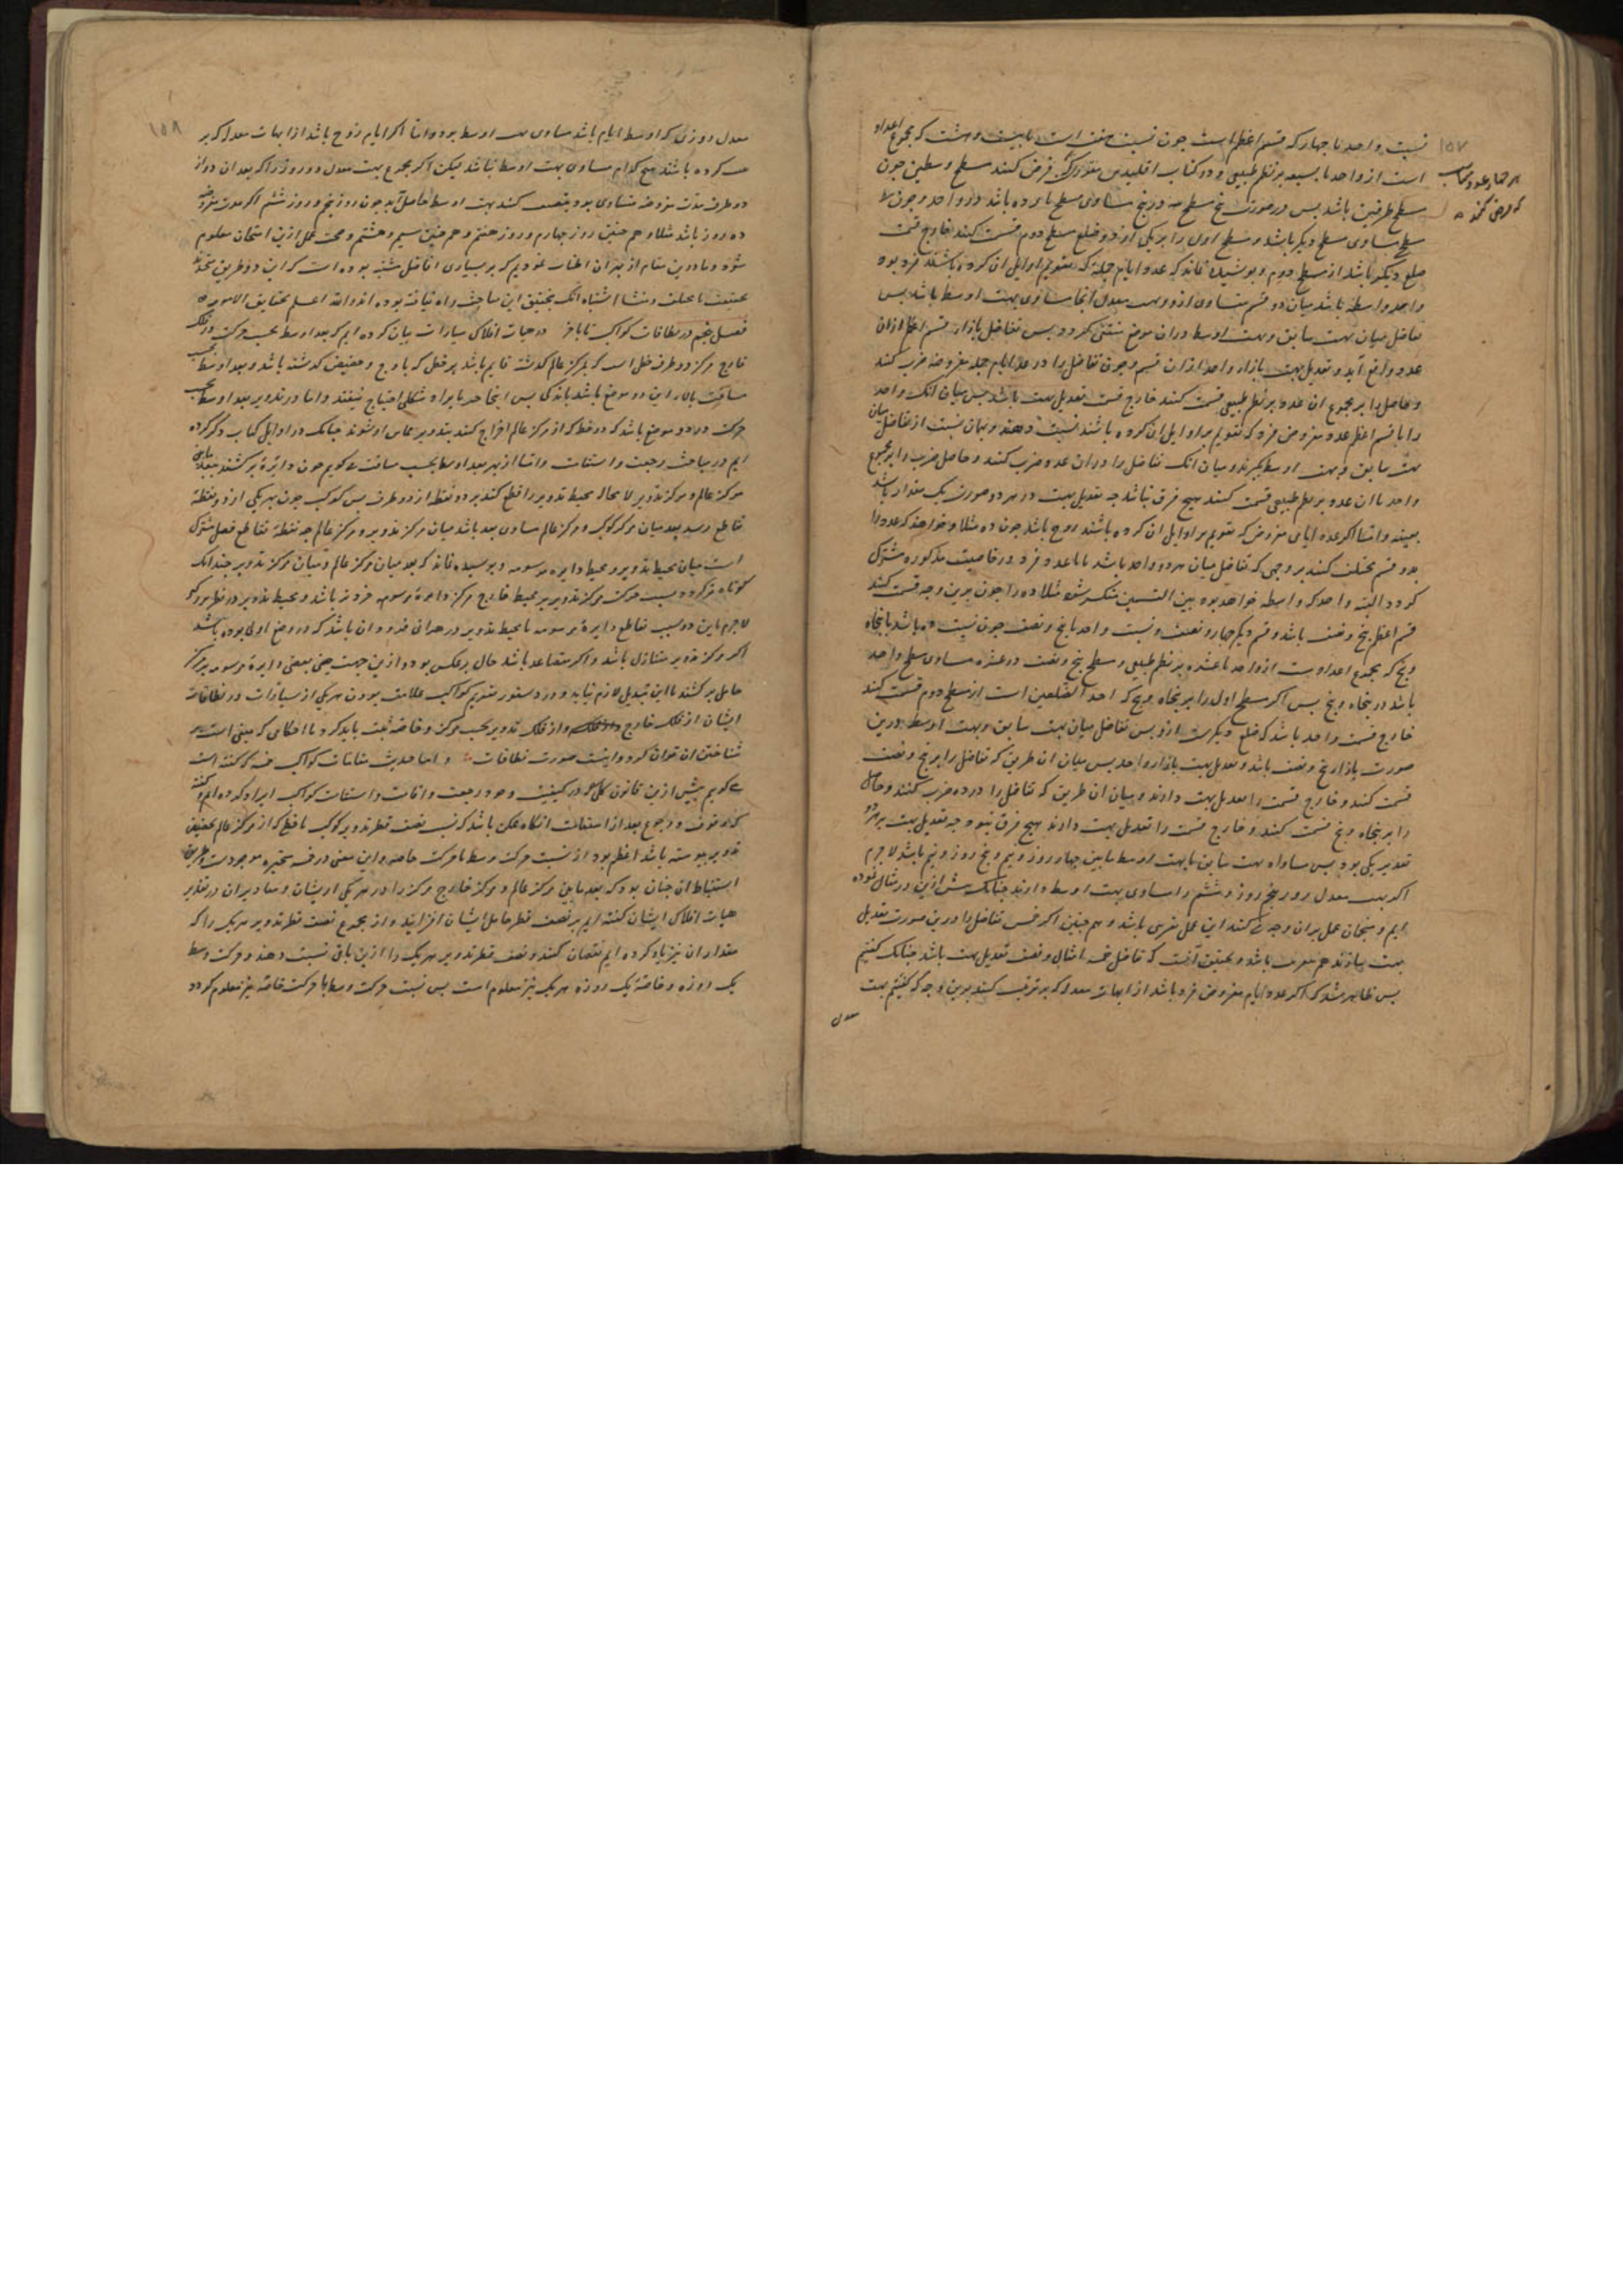 ۱۵۷
نسبت واحد با چهار که قسم اعظم است چون نسبت هفت است با بیست و هشت که مجموع اعداد
است از واحد تا سبعه بر نظم طبیعی و در کتاب اقلیدس فرض کنند سطح وسطین چون
سطح طرفین باشد پس درصورت
سطح مساوی سطح دیگر باشد و سطح اول را بر یکی از دو ضلع سطح دوم قسمت کنند خارج قسمت
ضلع دیگر باشد از سطح دوم و پوشیده نماند که عدد ایام جمله که تقویم اوایل ان کرده باشند فرد بود
واحد واسطه باشد میان دو قسم متساوی ازو وبهت معدل انجا مساوی بهت اوسط باشد پس
تفاضل میان بهت سابق وبهت اوسط دران موضع منتفی کردد پس تفاضل بازاء قسم اعظم ازان
عدد واقع آید و تعدیل بهت بازاء واحد ازان قسم و چون تفاضل را در عدد ایام جمله مفروضه ضرب کنند
و حاصل را بر مجموع ان عدد بر نظم طبیعی قسمت کنند خارج قسمت تعدیل بهت باشد پس میان انک واحد
را با قسم اعظم عدد مفروض فرد که تقویم بر اوایل ان کرده باشند نسبت دهند و بهمان نسبت از تفاضل میان
بهت سابق وبهت اوسط بگیرند و میان انک تفاضل را دران عدد ضرب کنند و حاصل ضرب را بر مجموع
واحد تا ان عدد بر نظم طبیعی قسمت کنند هیچ فرق نباشد چه تعدیل بهت در هر دو صورت یک مقدار باشد
بعینه واما اکر عدد ایامی مفروض که تقویم بر اوایل ان کرده باشند زوج باشد چون ده مثلا و خواهند که عدد را
بدو قسم مختلف کنند بر وجهی که تفاضل میان هر دو واحد باشد تا با عدد فرد در خاصیت مذکوره مشترک
کردد البته واحد که واسطه خواهد بود بین القسمین منکسر شود مثلا ده را چون برین وجه قسمت کنند
قسم اعظم پنج و نصف باشد و قسم دیگر چهار و نصف و نسبت واحد با پنج و نصف چون نسبت ده باشد با پنجاه
و پنج که مجموع اعدادست از واحد تا عشره بر نظم طبیعی و سطح پنج و نصف در عشره مساوی سطح واحد
باشد در پنجاه و پنج پس اکر سطح اول را بر پنجاه و پنج که احد الضلعین است از سطح دوم قسمت کنند
خارج قسمت واحد باشد که ضلع دیگرست ازو پس تفاضل میان بهت سابق وبهت اوسط درین
صورت بازاء پنج و نصف باشد و تعدیل بهت بازاء واحد پس میان ان طریق که تفاضل را بر پنج و نصف
قسمت کنند و خارج قسمت را تعدیل بهت دارند و میان ان طریق که تفاضل را در ده ضرب کنند و حاصل
را بر پنجاه و پنج قسمت کنند و خارج قسمت را تعدیل بهت دارند هیچ فرق نبود چه تعدیل بهت بر هر دو
تقدیر یکی بود پس مساواه بهت سابق با بهت اوسط مابین چهار روز و نیم و پنج روز و نیم باشد لاجرم
اکر بهت معدل روز پنجم و روز ششم را مساوی بهت اوسط دارند چنانک پیش ازین در مثال نموده
ایم و منجمان عمل بران وجه کنند این عمل تقریبی باشد و هم چنین اکر خمس تفاضل را درین صورت تعدیل
بهت سازند هم تقریب باشد و تحقیق آنست که تفاضل خمسه امثال و نصف تعدیل بهت باشد چنانک کفتیم
پس ظاهر شد که اکر عدد ایام مفروض فرد باشد از ابهات معدله که بر ترتیب کنند برین وجه که کفتیم بهت
معدل
۱۵۸
معدل روزی که اوسط ایام باشد مساوی بهت اوسط بود واما اکر ایام زوج باشد از ابهات معدله که بر
کرده باشند هیچ کدام مساوی بهت اوسط نباشد لیکن اکر مجموع بهت معدل دو روز را که بعد ان دو از
دو طرف مدت مفروضه متساوی بود تنصیف کنند بهت اوسط حاصل آید چون روز پنجم و روز ششم اکر مدت مفروضه
ده روز باشد مثلا و هم چنین روز چهارم و روز هفتم و هم چنین سیم و هشتم و صحت عمل ازین امتحان معلوم
شود وما درین مقام از بهر آن اطناب نمودیم که بر بسیاری افاضل مشتبه بوده است که این دو طریق متحدند
بحقیقت یا مختلف و منشأ اشتباه انک بتحقیق این مباحث راه نیافته بوده اند والله اعلم بحقایق الامور
فصل پنجم در نطاقات کواکب تا باخر در هیات افلاک سیارات بیان کرده ایم که بعد اوسط بحسب حرکت در فلک
خارج مرکز دو طرف خطی است که بمرکز عالم کذشته قایم باشد بر خطی که باوج و حضیض کذشته باشد و بعد اوسط بحسب
مسافت بالاء این دو موضع باشد باندکی پس اینجا حد بایراد شکلی احتیاج نیفتد واما در تدویر بعد اوسط بحسب
حرکت در دو موضع باشد که دو خط که از مرکز عالم اخراج کنند بتدویر مماس او شوند چنانک در اوایل کتاب ذکر کرده
ایم در مباحث رجعت و استقامت واما از بهر بعد اوسط بحسب مسافت می کویم چون دایرهٔ بر کشند ببعد مابین
مرکز عالم و مرکز تدویر لا محاله محیط تدویر را قطع کند بر دو نقطه از دو طرف پس کوکب چون بهر یکی از دو نقطهٔ
تقاطع رسد بعد میان مرکز کوکب و مرکز عالم مساوی بعد باشد میان مرکز تدویر و مرکز عالم چه نقطهٔ تقاطع فصل مشترک
است میان محیط تدویر و محیط دایره مرسومه و پوشیده نماند که بعد میان مرکز عالم و میان مرکز تدویر چندانک
کوتاه تر کردد بسبب حرکت مرکز تدویر بر محیط خارج مرکز دایرهٔ مرسومه خردتر باشد و محیط تدویر در نظر بزرکتر
لاجرم باین دو سبب تقاطع دایرهٔ مرسومه با محیط تدویر فروتر ازان باشد که در وضع اول بوده باشد
اکر مرکز تدویر متنازل باشد و اکر متصاعد باشد حال برعکس بود و ازین جهت
حامل بر کشند تا این تبدیل لازم نیاید و در دستور تقویم کواکب علامت بودن هر یکی از سیارات در نطاقات
ایشان از فلک خارج و از فلک تدویر بحسب مرکز و خاصه ثبت باید کرد تا احکامی که مبنی است بر
شناختن ان توان کرد و اینست صورت نطاقات و اما حدیث مقامات کواکب خمسه که کفته است
می کویم پیش ازین قانون کلی در کیفیت وجود رجعت و اقامت و استقامت کواکب ایراد کرده ایم و کفته
که وقوف و رجوع بعد از استقامت انکاه ممکن باشد که نسبت نصف قطر تدویر کوکب با خطی که از مرکز عالم بحضیض
تدویر پیوسته باشد اعظم بود از نسبت حرکت وسط با حرکت خاصه و این معنی در خمسه متحیره موجودست و طریق
استنباط ان چنان بود که بعد مابین مرکز عالم و مرکز خارج مرکز را در هر یکی از یشان و مقادیر ان در تقدیر
هیات افلاک ایشان کفته ایم بر نصف قطر حامل ایشان افزایند و از مجموع نصف قطر تدویر هر یک را که
مقدار ان نیز یاد کرده ایم نقصان کنند و نصف قطر تدویر هر یک را ازین باقی نسبت دهند و حرکت وسط
یک روزه و خاصهٔ یک روزه هر یک نیز معلوم است پس نسبت حرکت وسط با حرکت خاصه نیز معلوم کردد